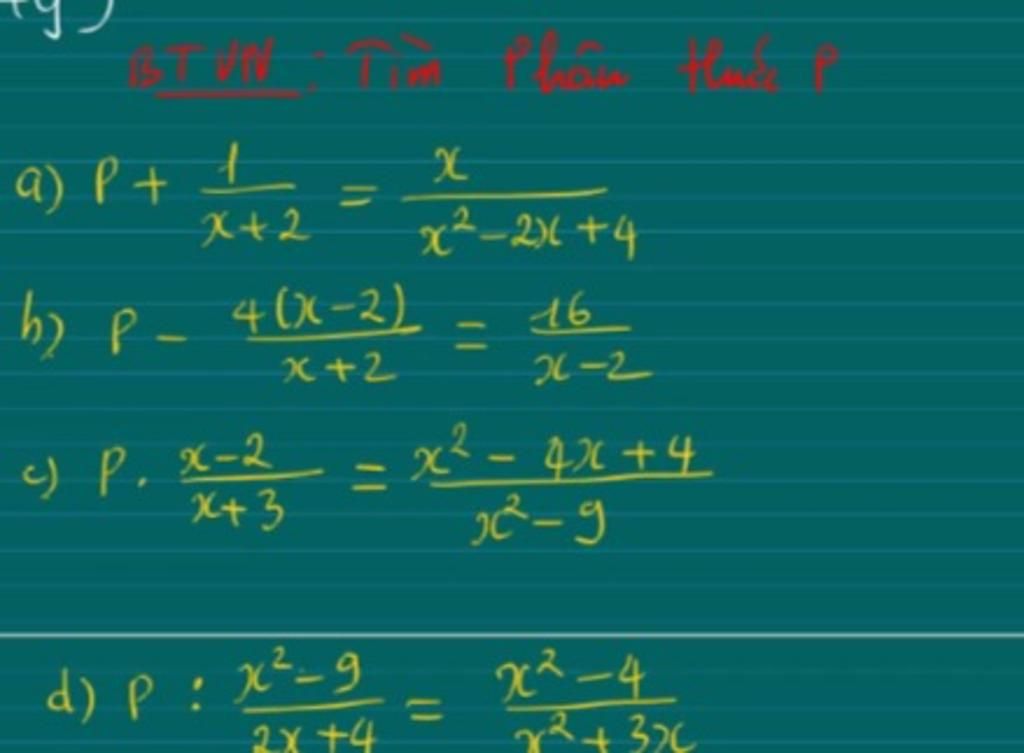 +y)
BTVN: Tìm Phân thức P
a) P + 1/(x+2) = x/(x²-2x+4)
b) P - 4(x-2)/(x+2) = 16/(x-2)
c) P . (x-2)/(x+3) = (x²-4x+4)/(x²-9)
d) P : (x²-9)/(2x+4) = (x²-4)/(x²+3x)